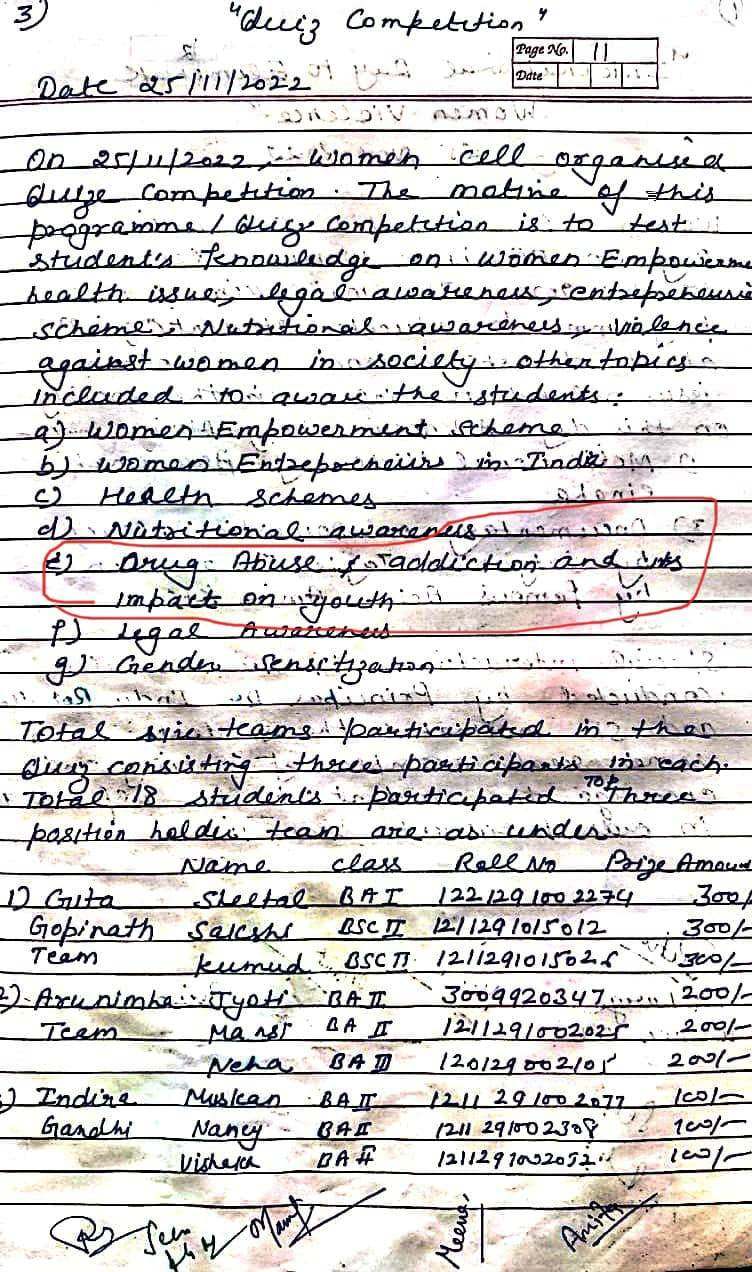 3) "Quiz Competition"
Page No. 11
Date
Date 25/11/2022
On 25/11/2022, women cell organised
Quize Competition. The motive of this
programme / Quize Competetion is to test
student's knowledge on women Empowerme
health issue, legal awareness, entrepreneuri
scheme, Nutritional awareness, violence
against women in society. other topics
included to aware the students:
a) Women Empowerment Scheme
b) women Entrepreneiurs in India
c) Health schemes
d) Nutritional awareness
e) Drug Abuse & addiction and its
impact on youth
f) Legal Awareness
g) Gender Sensitization
Total six teams participated in the
Quiz consisting three participants in each.
Total 18 students participated Top Three
position holder team are as under
Name Class Roll No Prize Amoun
1) Gita Sheetal BA I 1221291002274 300/-
Gopinath Sakshi BSC II 1211291015012 300/-
Team Kumud BSC II 300/-
2) Arunimha Jyoti BA II 3009920347 200/-
Team Mansi BA II 1211291002025 200/-
Neha BA III 120129002105 200/-
) Indira Muskan BA II 1211291002077 100/-
Gandhi Nancy BA II 1211291002308 100/-
BA II 1211291002052 100/-
Meena
Anita